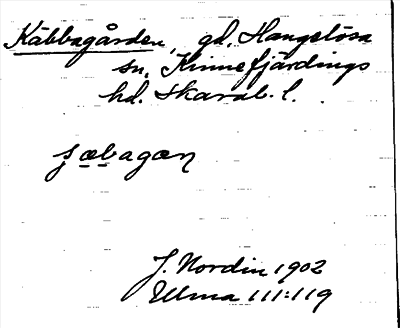 Käbbagården, gd, Hangelösa
sn, Kinnefjärdings
hd. Skarab. l.
ʂæbagaɳ
J. Nordin 1902
Ulma 111:119